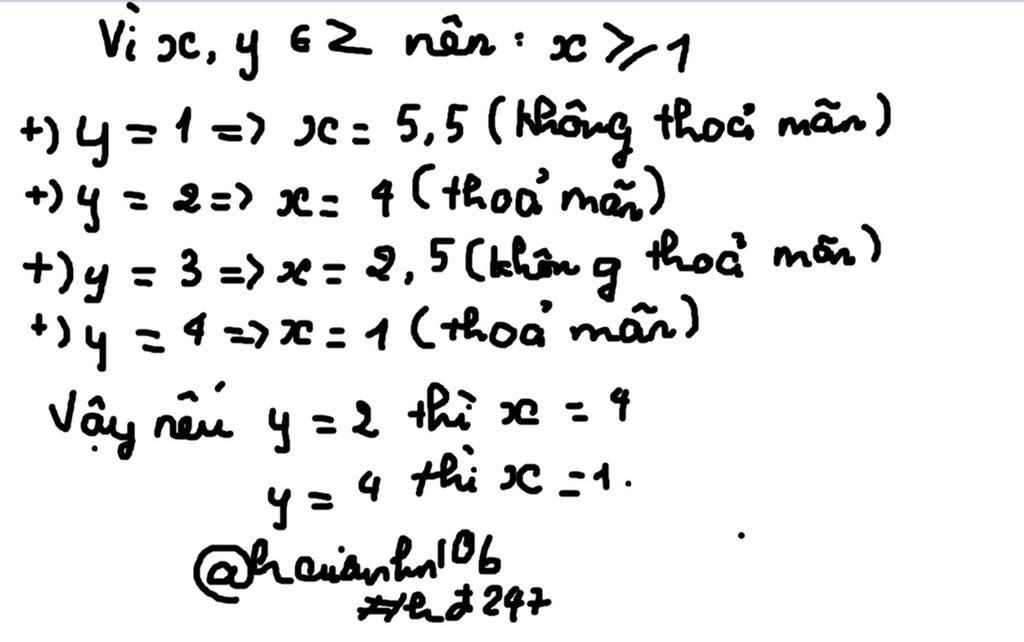 Vì x, y ∈ Z nên: x ⩾ 1
+) y = 1 => x = 5,5 (không thoả mãn)
+) y = 2 => x = 4 (thoả mãn)
+) y = 3 => x = 2,5 (không thoả mãn)
+) y = 4 => x = 1 (thoả mãn)
Vậy nếu y = 2 thì x = 4
y = 4 thì x = 1.